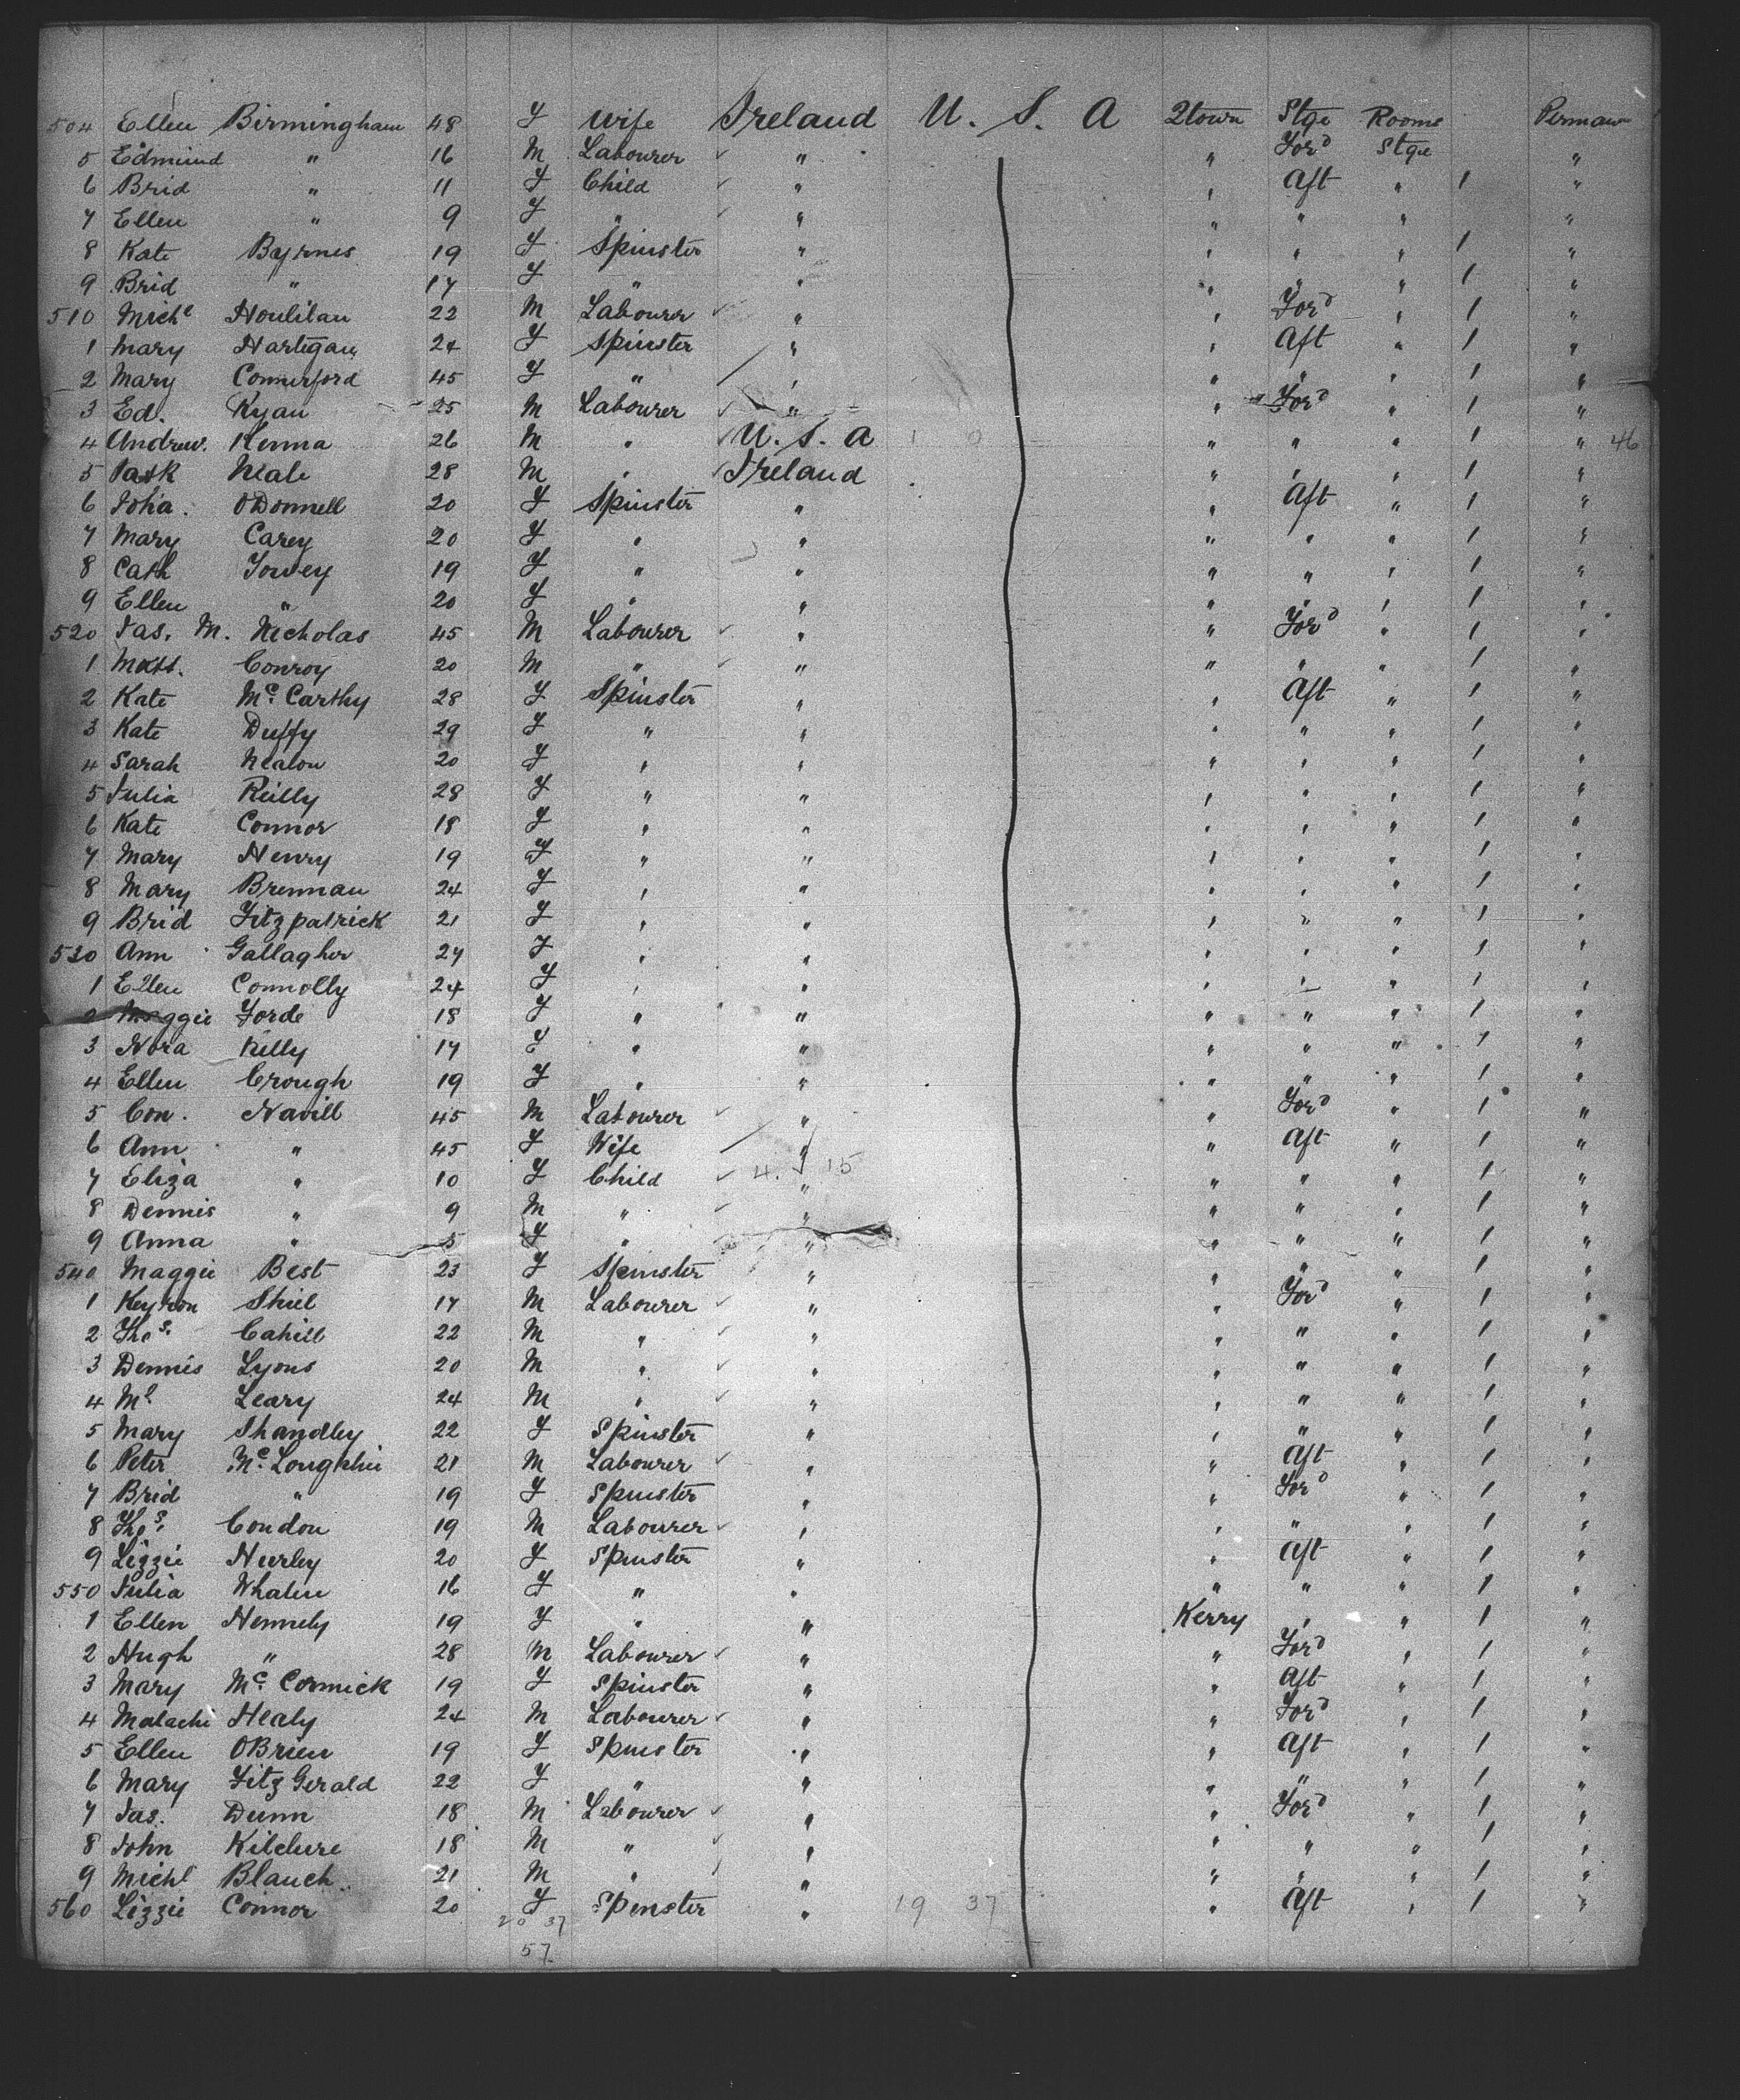 504 Ellen Birmingham 48 F Wife Ireland U. S. A Qtown Stge Rooms Perman
5 Edmund " 16 M Labourer " " Ford Stge "
6 Brid " 11 F Child " " Aft " 1 "
7 Ellen " 9 F " " " " " "
8 Kate Byrnes 19 F Spinster " " " " 1 "
9 Brid " 17 F " " " " " 1 "
510 Michl Houlihan 22 M Labourer " " Ford " 1 "
1 Mary Hartigan 24 F Spinster " " Aft " 1 "
2 Mary Commerford 45 F " " " " " 1 "
3 Ed. Ryan 25 M Labourer " " Ford " 1 "
4 Andrew. Kenna 26 M " U. S. A 1 0 " " " 1 " 46
5 Patk Neale 28 M " Ireland " " " 1 "
6 Joha. ODonnell 20 F Spinster " " Aft " 1 "
7 Mary Carey 20 F " " " " " 1 "
8 Cath Towey 19 F " " " " " 1 "
9 Ellen " 20 F " " " " " 1 "
520 Jas. M. Nicholas 45 M Labourer " " Ford " 1 "
1 Matt. Conroy 20 M " " " " " 1 "
2 Kate Mc Carthy 28 F Spinster " " Aft " 1 "
3 Kate Duffy 29 F " " " " " 1 "
4 Sarah Nealon 20 F " " " " " 1 "
5 Julia Reilly 28 F " " " " " 1 "
6 Kate Connor 18 F " " " " " 1 "
7 Mary Henry 19 F " " " " " 1 "
8 Mary Brennan 24 F " " " " " 1 "
9 Brid Fitzpatrick 21 F " " " " " 1 "
530 Ann Gallagher 24 F " " " " " 1 "
1 Ellen Connolly 24 F " " " " " 1 "
2 Maggie Forde 18 F " " " " " 1 "
3 Nora Kelly 17 F " " " " " 1 "
4 Ellen Crough 19 F " " " " " 1 "
5 Con. Navill 45 M Labourer " " Ford " 1 "
6 Ann " 45 F Wife " " Aft " 1 "
7 Eliza " 10 F Child 4. 15 " " " " 1 "
8 Dennis " 9 M " " " " " 1 "
9 Anna " 5 F " " " " " 1 "
540 Maggie Best 23 F Spinster " " " " 1 "
1 Keyron Shiel 17 M Labourer " " Ford " 1 "
2 Thos. Cahill 22 M " " " " " 1 "
3 Dennis Lyons 20 M " " " " " 1 "
4 Ml Leary 24 M " " " " " 1 "
5 Mary Shandley 22 F Spinster " " " " 1 "
6 Peter Mc Loughlin 21 M Labourer " " Aft " 1 "
7 Brid " 19 F Spinster " " Ford " 1 "
8 Thos. Condon 19 M Labourer " " " " 1 "
9 Lizzie Hurley 20 F Spinster " " Aft " 1 "
550 Julia Whalen 16 F " " " " " 1 "
1 Ellen Hennely 19 F " " Kerry " " 1 "
2 Hugh " 28 M Labourer " " Ford " 1 "
3 Mary Mc Cormick 19 F Spinster " " Aft " 1 "
4 Malachi Healy 24 M Labourer " " Ford " 1 "
5 Ellen OBrien 19 F Spinster " " Aft " 1 "
6 Mary FitzGerald 22 F " " " " " 1 "
7 Jas. Dunn 18 M Labourer " " Ford " 1 "
8 John Kilclure 18 M " " " " " 1 "
9 Michl Blauch 21 M " " " " " 1 "
560 Lizzie Connor 20 F Spinster " 19 37 " Aft " 1 "
20 37
57